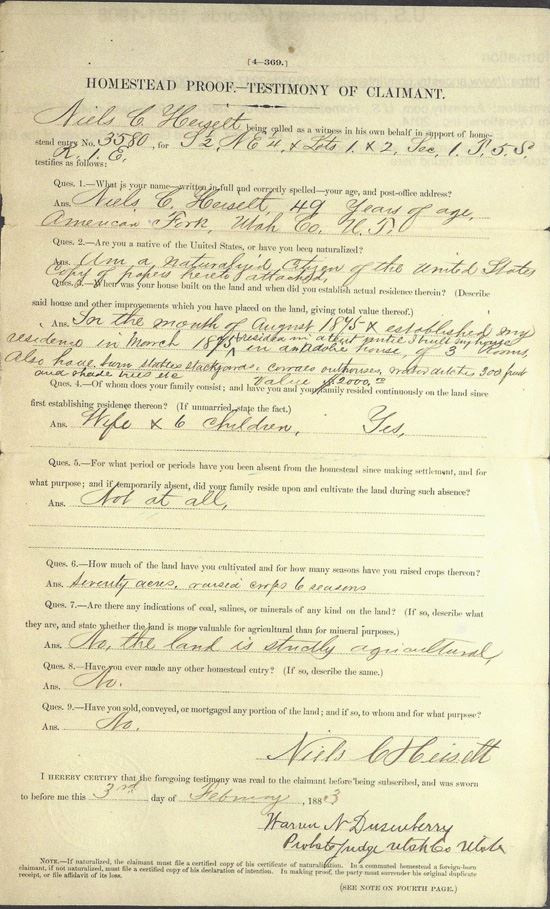 [4—369.]
HOMESTEAD PROOF.—TESTIMONY OF CLAIMANT.
Niels C. Heiselt being called as a witness in his own behalf in support of home-
stead entry No. 3580, for S 2, N E 4, & Lots 1. & 2, Sec, 1 T, 5, S,
R, 1 E,
testifies as follows:
Ques. 1.—What is your name—written in full and correctly spelled—your age, and post-office address?
Ans. Niels C. Heiselt, 49 Years of age,
American Fork, Utah Co. U. T.
Ques. 2.—Are you a native of the United States, or have you been naturalized?
Ans. Am a naturalized Citizen of the United States
Copy of papers hereto attached
Ques. 3.—When was your house built on the land and when did you establish actual residence therein? (Describe
said house and other improvements which you have placed on the land, giving total value thereof.)
Ans. In the month of August 1875 & established my
residence in March 1875, resided in a tent until I built my house
in an adobe house, of 3 rooms,
Also have barn stables stackyards, corrals outhouses, water ditches 300 fruit
and shade trees etc
Value $2000.00
Ques. 4.—Of whom does your family consist; and have you and your family resided continuously on the land since
first establishing residence thereon? (If unmarried, state the fact.)
Ans. Wife & 6 Children, Yes,
Ques. 5.—For what period or periods have you been absent from the homestead since making settlement, and for
what purpose; and if temporarily absent, did your family reside upon and cultivate the land during such absence?
Ans. Not at all,
Ques. 6.—How much of the land have you cultivated and for how many seasons have you raised crops thereon?
Ans. Seventy acres, raised crops 6 seasons
Ques. 7.—Are there any indications of coal, salines, or minerals of any kind on the land? (If so, describe what
they are, and state whether the land is more valuable for agricultural than for mineral purposes.)
Ans. No, the land is strictly agricultural,
Ques. 8.—Have you ever made any other homestead entry? (If so, describe the same.)
Ans. No.
Ques. 9.—Have you sold, conveyed, or mortgaged any portion of the land; and if so, to whom and for what purpose?
Ans. No.
Niels C Heiselt
I HEREBY CERTIFY that the foregoing testimony was read to the claimant before being subscribed, and was sworn
to before me this 3rd day of February, 1883
Warren N Dusenberry
Probate Judge Utah Co Utah
NOTE.—If naturalized, the claimant must file a certified copy of his certificate of naturalization. In a commuted homestead a foreign-born
claimant, if not naturalized, must file a certified copy of his declaration of intention. In making proof, the party must surrender his original duplicate
receipt, or file affidavit of its loss.
(SEE NOTE ON FOURTH PAGE.)